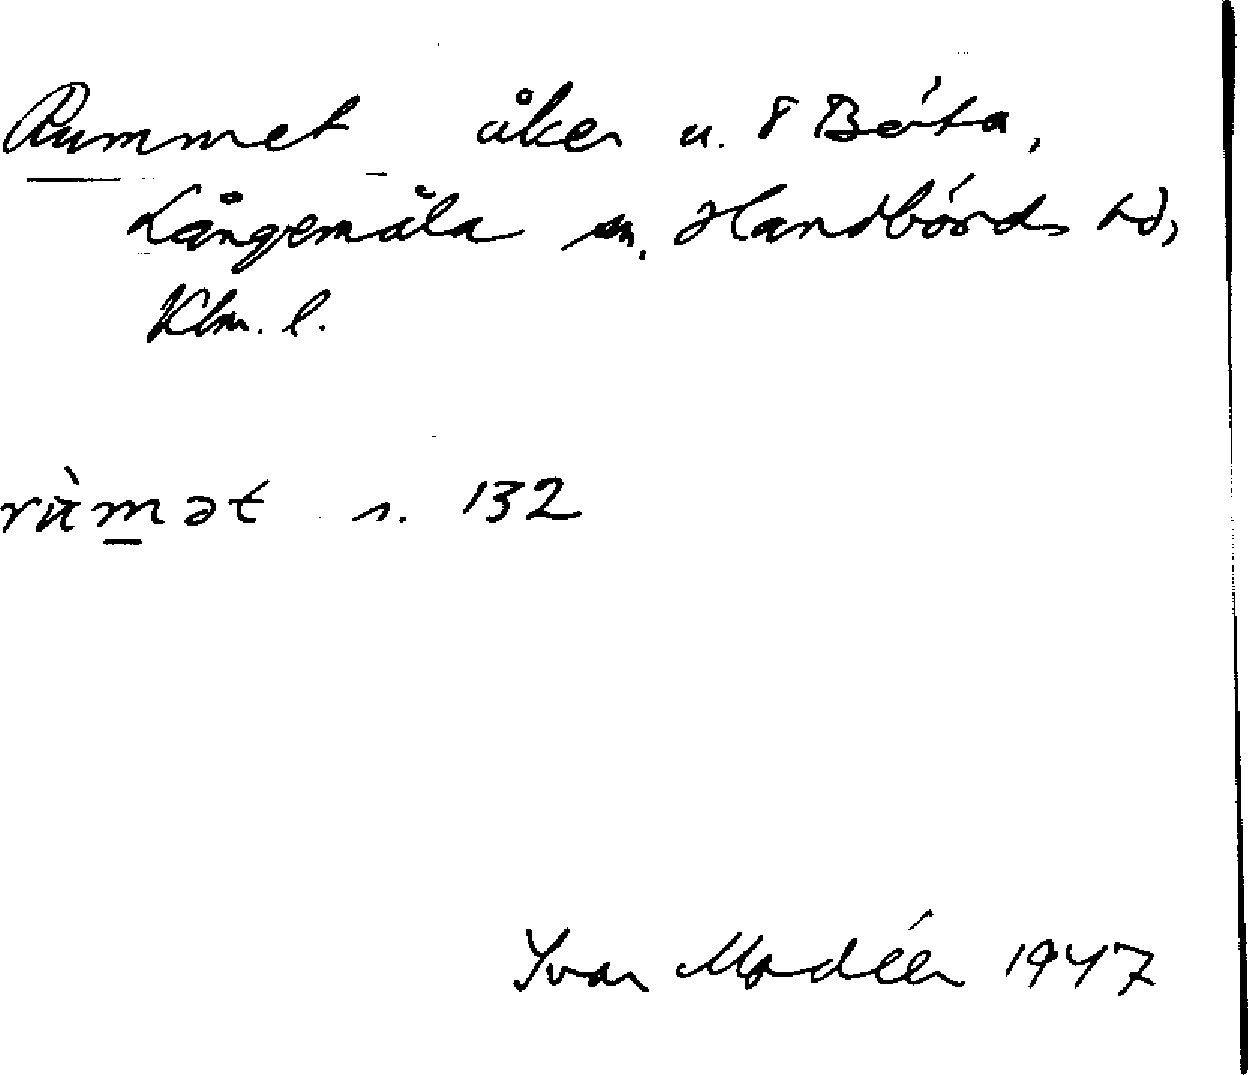 Rummet åker u. 8 Böta,
Långemåla sn. Handbörds hd,
Klm. l.
rùmət s. 132
Yvar Modéer 1947